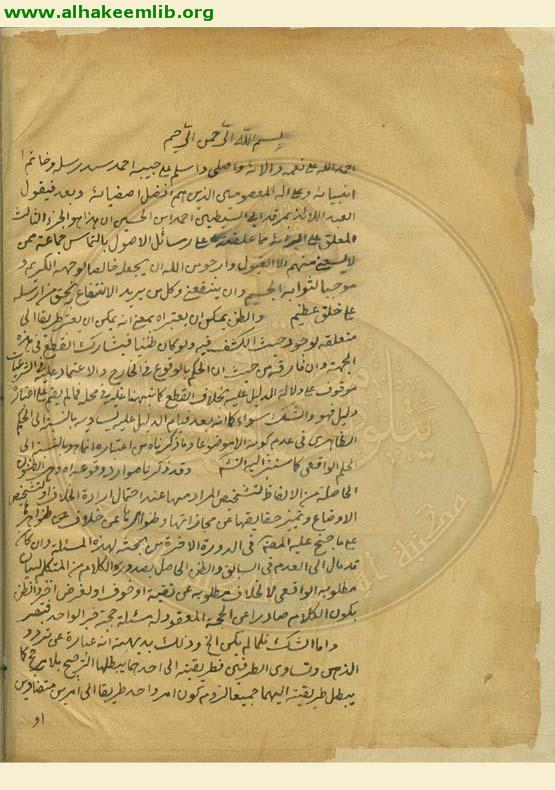 www.alhakeemlib.org
بسم الله الرحمن الرحيم
احمد الله على نعمه والائه واصلي واسلم على حبيبه احمد سيد رسله وخاتم
انبيائه وعلى اله المعصومين الذين هم افضل اصفيائه وبعد فيقول
العبد اللائذ بمرقد ابي السبطين احمد ابن الحسين ان هذا هو الجزء الثالث
المعلق على البرائة مما علقته على رسائل الاصول بالتماس جماعة ممن
لا يسعني منهم الا القبول وارجو من الله ان يجعله خالصا لوجهه الكريم و
موجبا لثوابه الجسيم وان ينفعني وكل من يريد الانتفاع بحق من ارسله
على خلق عظيم والظن يمكن ان يعتبر اه بمعنى انه يمكن ان يعتبر طريقا الى
متعلقه لوجود حيث الكشف فيه ولو كان ظنا فيشارك القطع في هذه
الجهة وان فارقه من حيث ان الحكم بالوقوع في الخارج والاعتماد عليه في الشرعيات
موقوف على دلالة الدليل عليه بخلاف القطع كما نبهنا عليه في محله فما لم يقم على اعتباره
دليل فهو والشك سواء كما انه بعد قيام الدليل عليه يساويه بالنسبة الى الحكم
الظاهري في عدم كونه الا موضوعا وما ذكرناه من اعتباره انما هو بالنسبة الى
الحكم الواقعي كما سنشير اليه وقد ذكرنا موارد وقوعه اه وهي الظنون
الحاصلة من الالفاظ لتشخيص المراد منها عند احتمال ارادة الخلاف او لتشخيص
الاوضاع وتميز حقايقها عن مجازاتها وظواهرها عن خلاف ظواهرها
على ما جنح عليه المصنف في الدورة الاخيرة من بحثه لهذه المسئلة وان كان
قد مال الى العدم في السابق والظن الحاصل بصدور الكلام من المتكلم لبيان
مطلوبه الواقعي لا لخلاف مطلوبه عن تقية او خوف او لغرض اخر والظن
بكون الكلام صادرا عن الحجة المعقود له مسئلة حجية خبر الواحد فتبصر
واما الشك فلما لم يكن الخ وذلك بديهية انه عبارة عن تردد
الذهن وتساوى الطرفين فطريقيته الى احدهما يبطلها الترجيح بلا مرجح كما
يبطل طريقيته اليهما جميعا لزوم كون امر واحد طريقا الى امرين متضادين
او